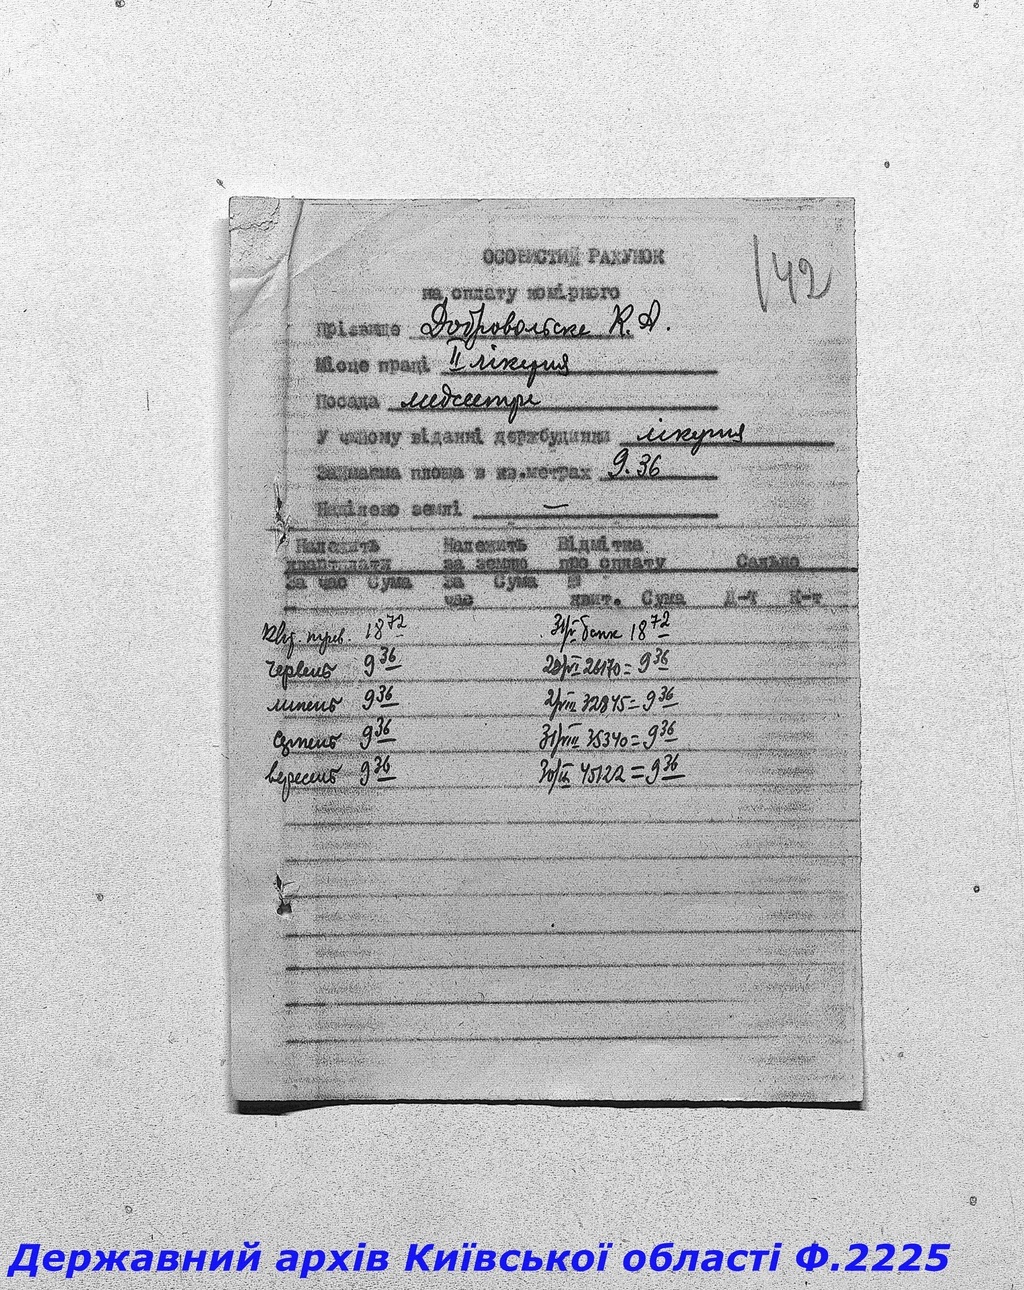 142
ОСОБИСТИЙ РАХУНОК
на оплату комірного
Прізвище Добровольске К. Д.
Місце праці II лікерня
Посада медсестре
У чиїому віданні держбудинки лікерня
Займаєма площа в кв.метрах 9.36
Наділено землі —
Належить Належить Відмітка
квартплати за землю про оплату Сальдо
за час Сума за Сума №
час квит. Сума Д-т К-т
18 72 банк 18 72
червень 9 36 26170 = 9 36
липень 9 36 2/VIII 32845 = 9 36
серпень 9 36 31/VIII 35340 = 9 36
вересень 9 36 30/IX 45122 = 9 36
Державний архів Київської області Ф.2225